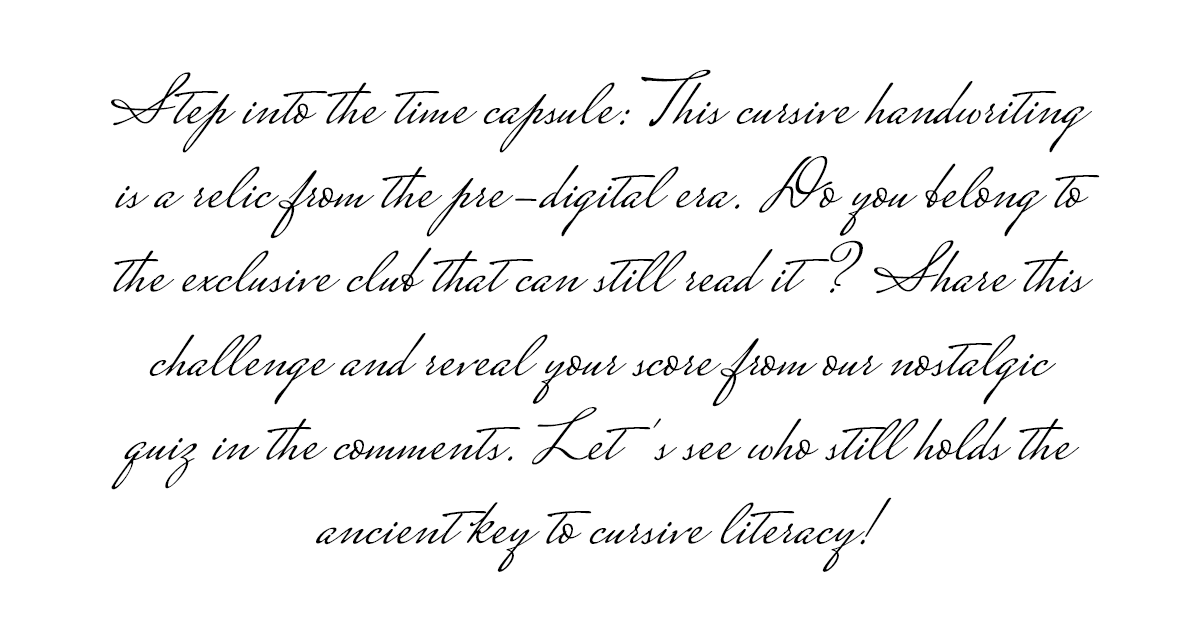 Step into the time capsule: This cursive handwriting
is a relic from the pre-digital era. Do you belong to
the exclusive club that can still read it? Share this
challenge and reveal your score from our nostalgic
quiz in the comments. Let's see who still holds the
ancient key to cursive literacy!